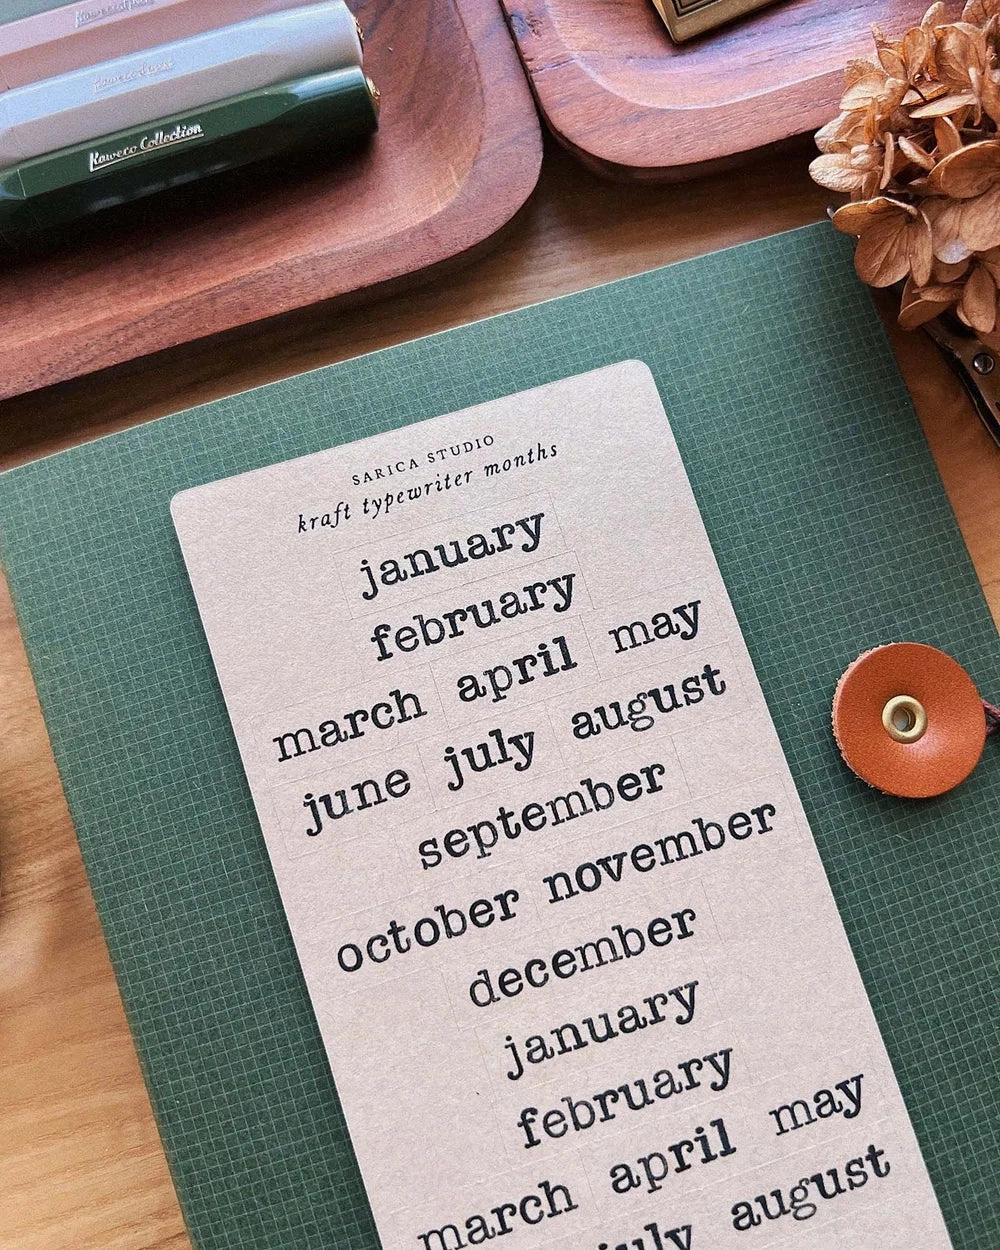 Kaweco Collection
SARICA STUDIO
kraft typewriter months
january
february
march april may
june july august
september
october november
december
january
february
march april may
july august